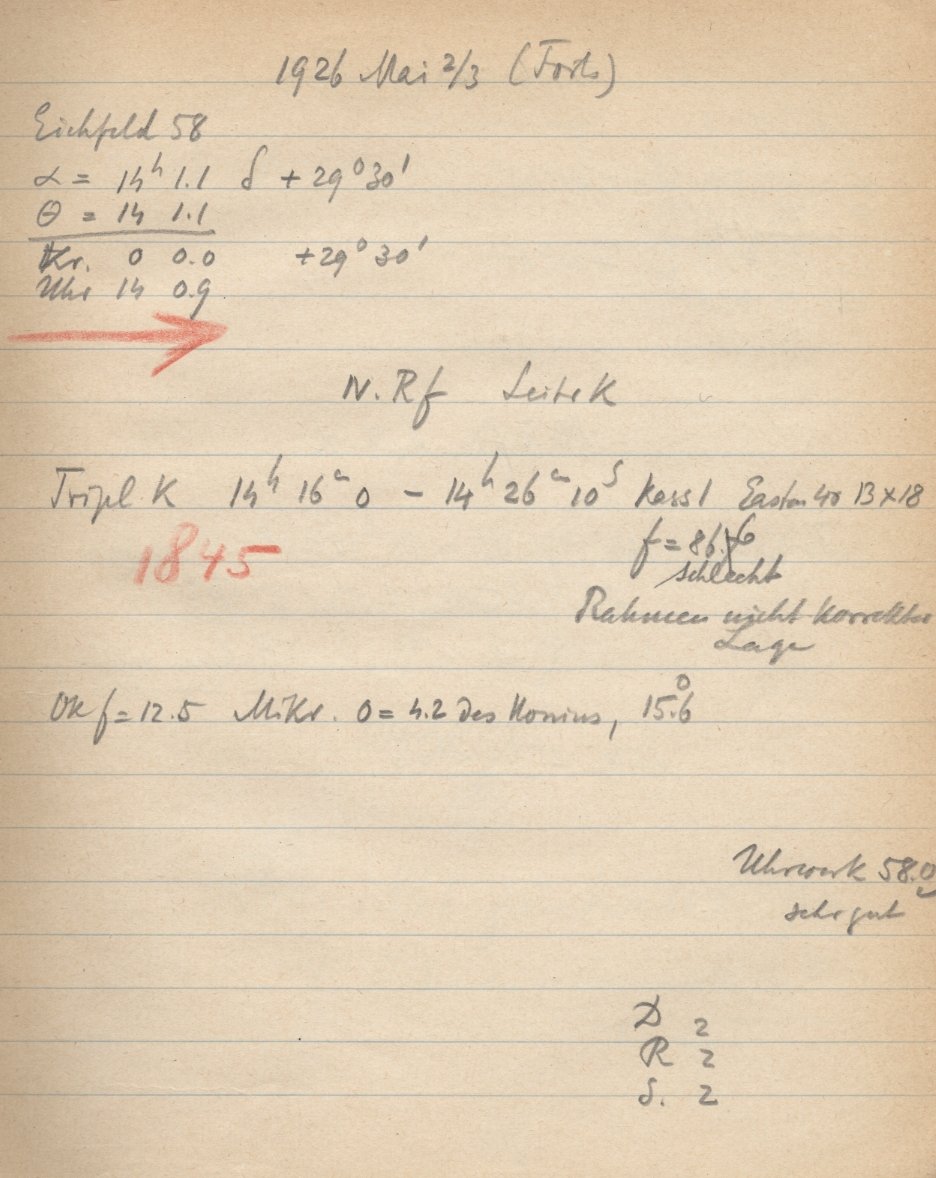 1926 Mai 2/3 (Forts)
Eichfeld 58
α = 14h 1.1 δ +29° 30'
θ = 14 1.1
Kr. 0 0.0 +29° 30'
Uhr 14 0.9
IV. Rf Leitr K
Tripl. K 14h 16m 0 – 14h 26m 10s Kass 1 Eastm 40 13×18
1845
f = 86.
schlecht
Rahmen nicht korrekter
Lage
Ok f = 12.5 Mikr. 0 = 4.2 des Nonius, 15.°6
Uhrwerk 58.0
sehr gut
D 2
R 2
S. 2